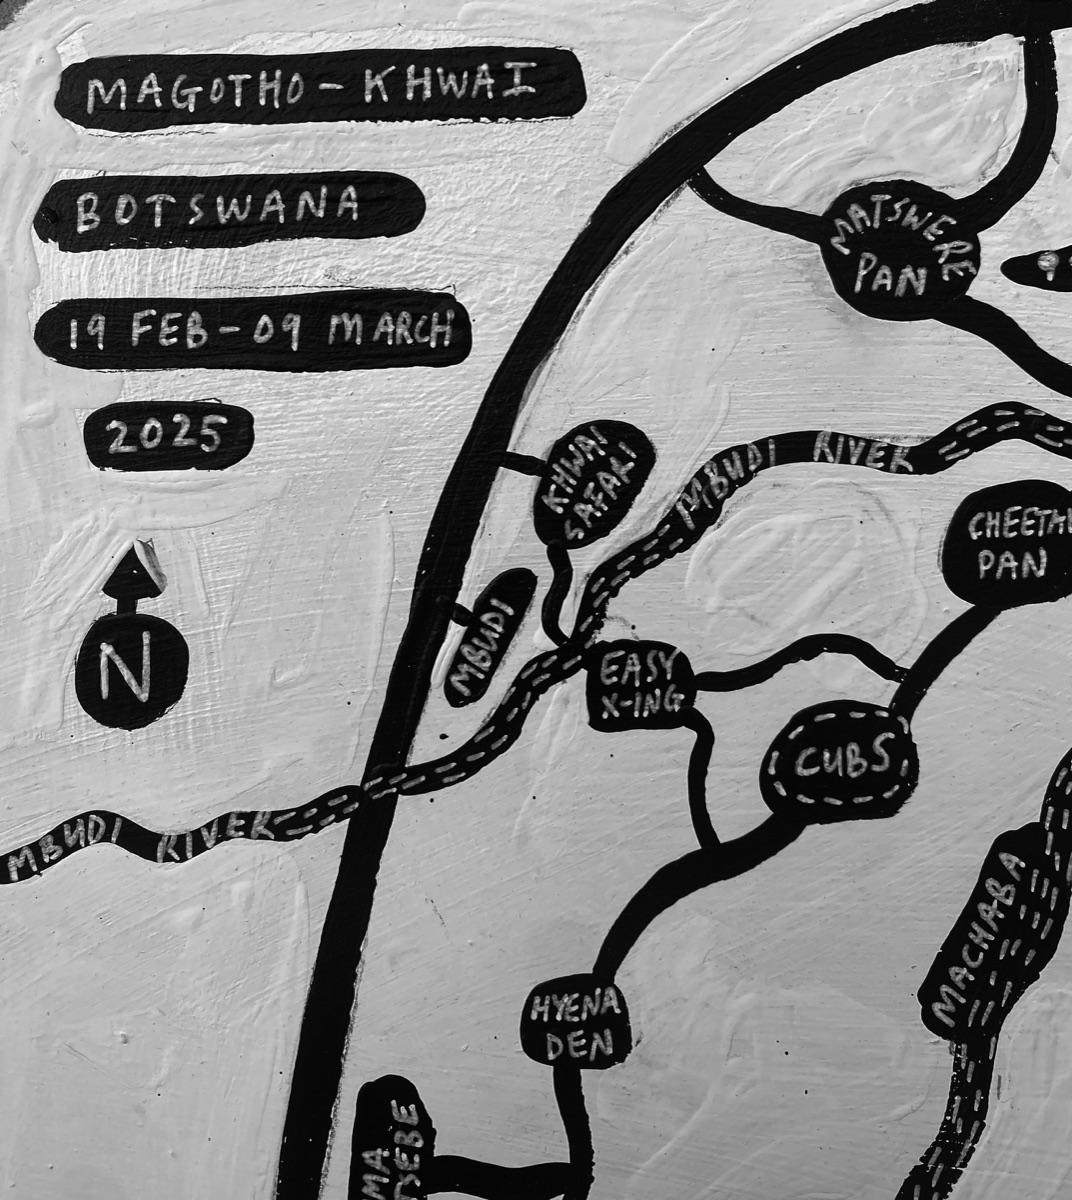 MAGOTHO - KHWAI
BOTSWANA
19 FEB - 09 MARCH
2025
N
MATSWERE
PAN
KHWAI
SAFARI
MBUDI RIVER
CHEETAH
PAN
MBUDI
EASY
X-ING
CUBS
MBUDI RIVER
MACHABA
HYENA
DEN